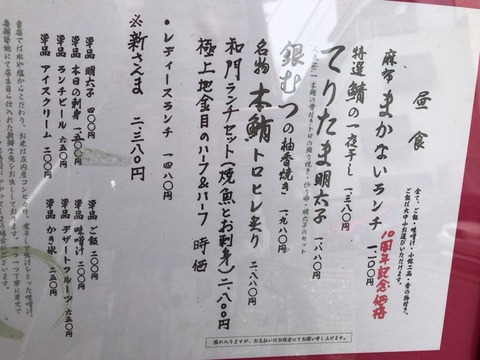 昼食
全て、ご飯・味噌汁・小鉢二品・香の物付き。
ご飯は大中小お選びいただけます。
麻布 まかないランチ 一、二〇〇円
10周年記念価格
特選 鯖の一夜干し 一、三八〇円
てりたま明太子 一、八八〇円
銀むつの柚香焼き 一、九八〇円
名物 本鮪トロヒレ炙り 二、二八〇円
和門ランチセット(焼魚とお刺身)二、八〇〇円
極上地金目のハーフ&ハーフ 時価
・レディースランチ 一、四八〇円
※新さんま 二、三八〇円
単品 明太子 四〇〇円
単品 本日の刺身 一、五〇〇円
単品 ランチビール 六五〇円
単品 アイスクリーム 二〇〇円
単品 ご飯 二〇〇円
単品 味噌汁 二〇〇円
単品 デザートフルーツ 六五〇円
単品 かき氷 五五〇円
恐れ入りますが、お支払いはお席会にてお願い申し上げます。